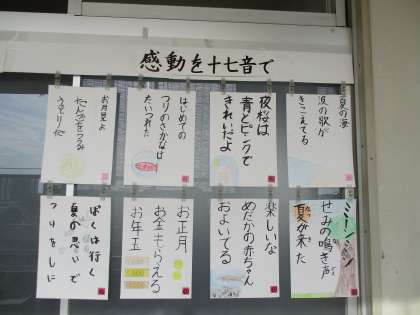 感動を十七音で
夏の海
波の歌が
きこえてる
夜桜は
青とピンクで
きれいだよ
はじめての
つりのさかなは
たいつれた
お月見よ
だんごをつるみ
ミーンミン
せみの鳴き声
夏が来た
楽しいな
めだかの赤ちゃん
およいでる
お正月
お金もらえる
お年玉
ぼくは行く
夏の思い出
つりをしに